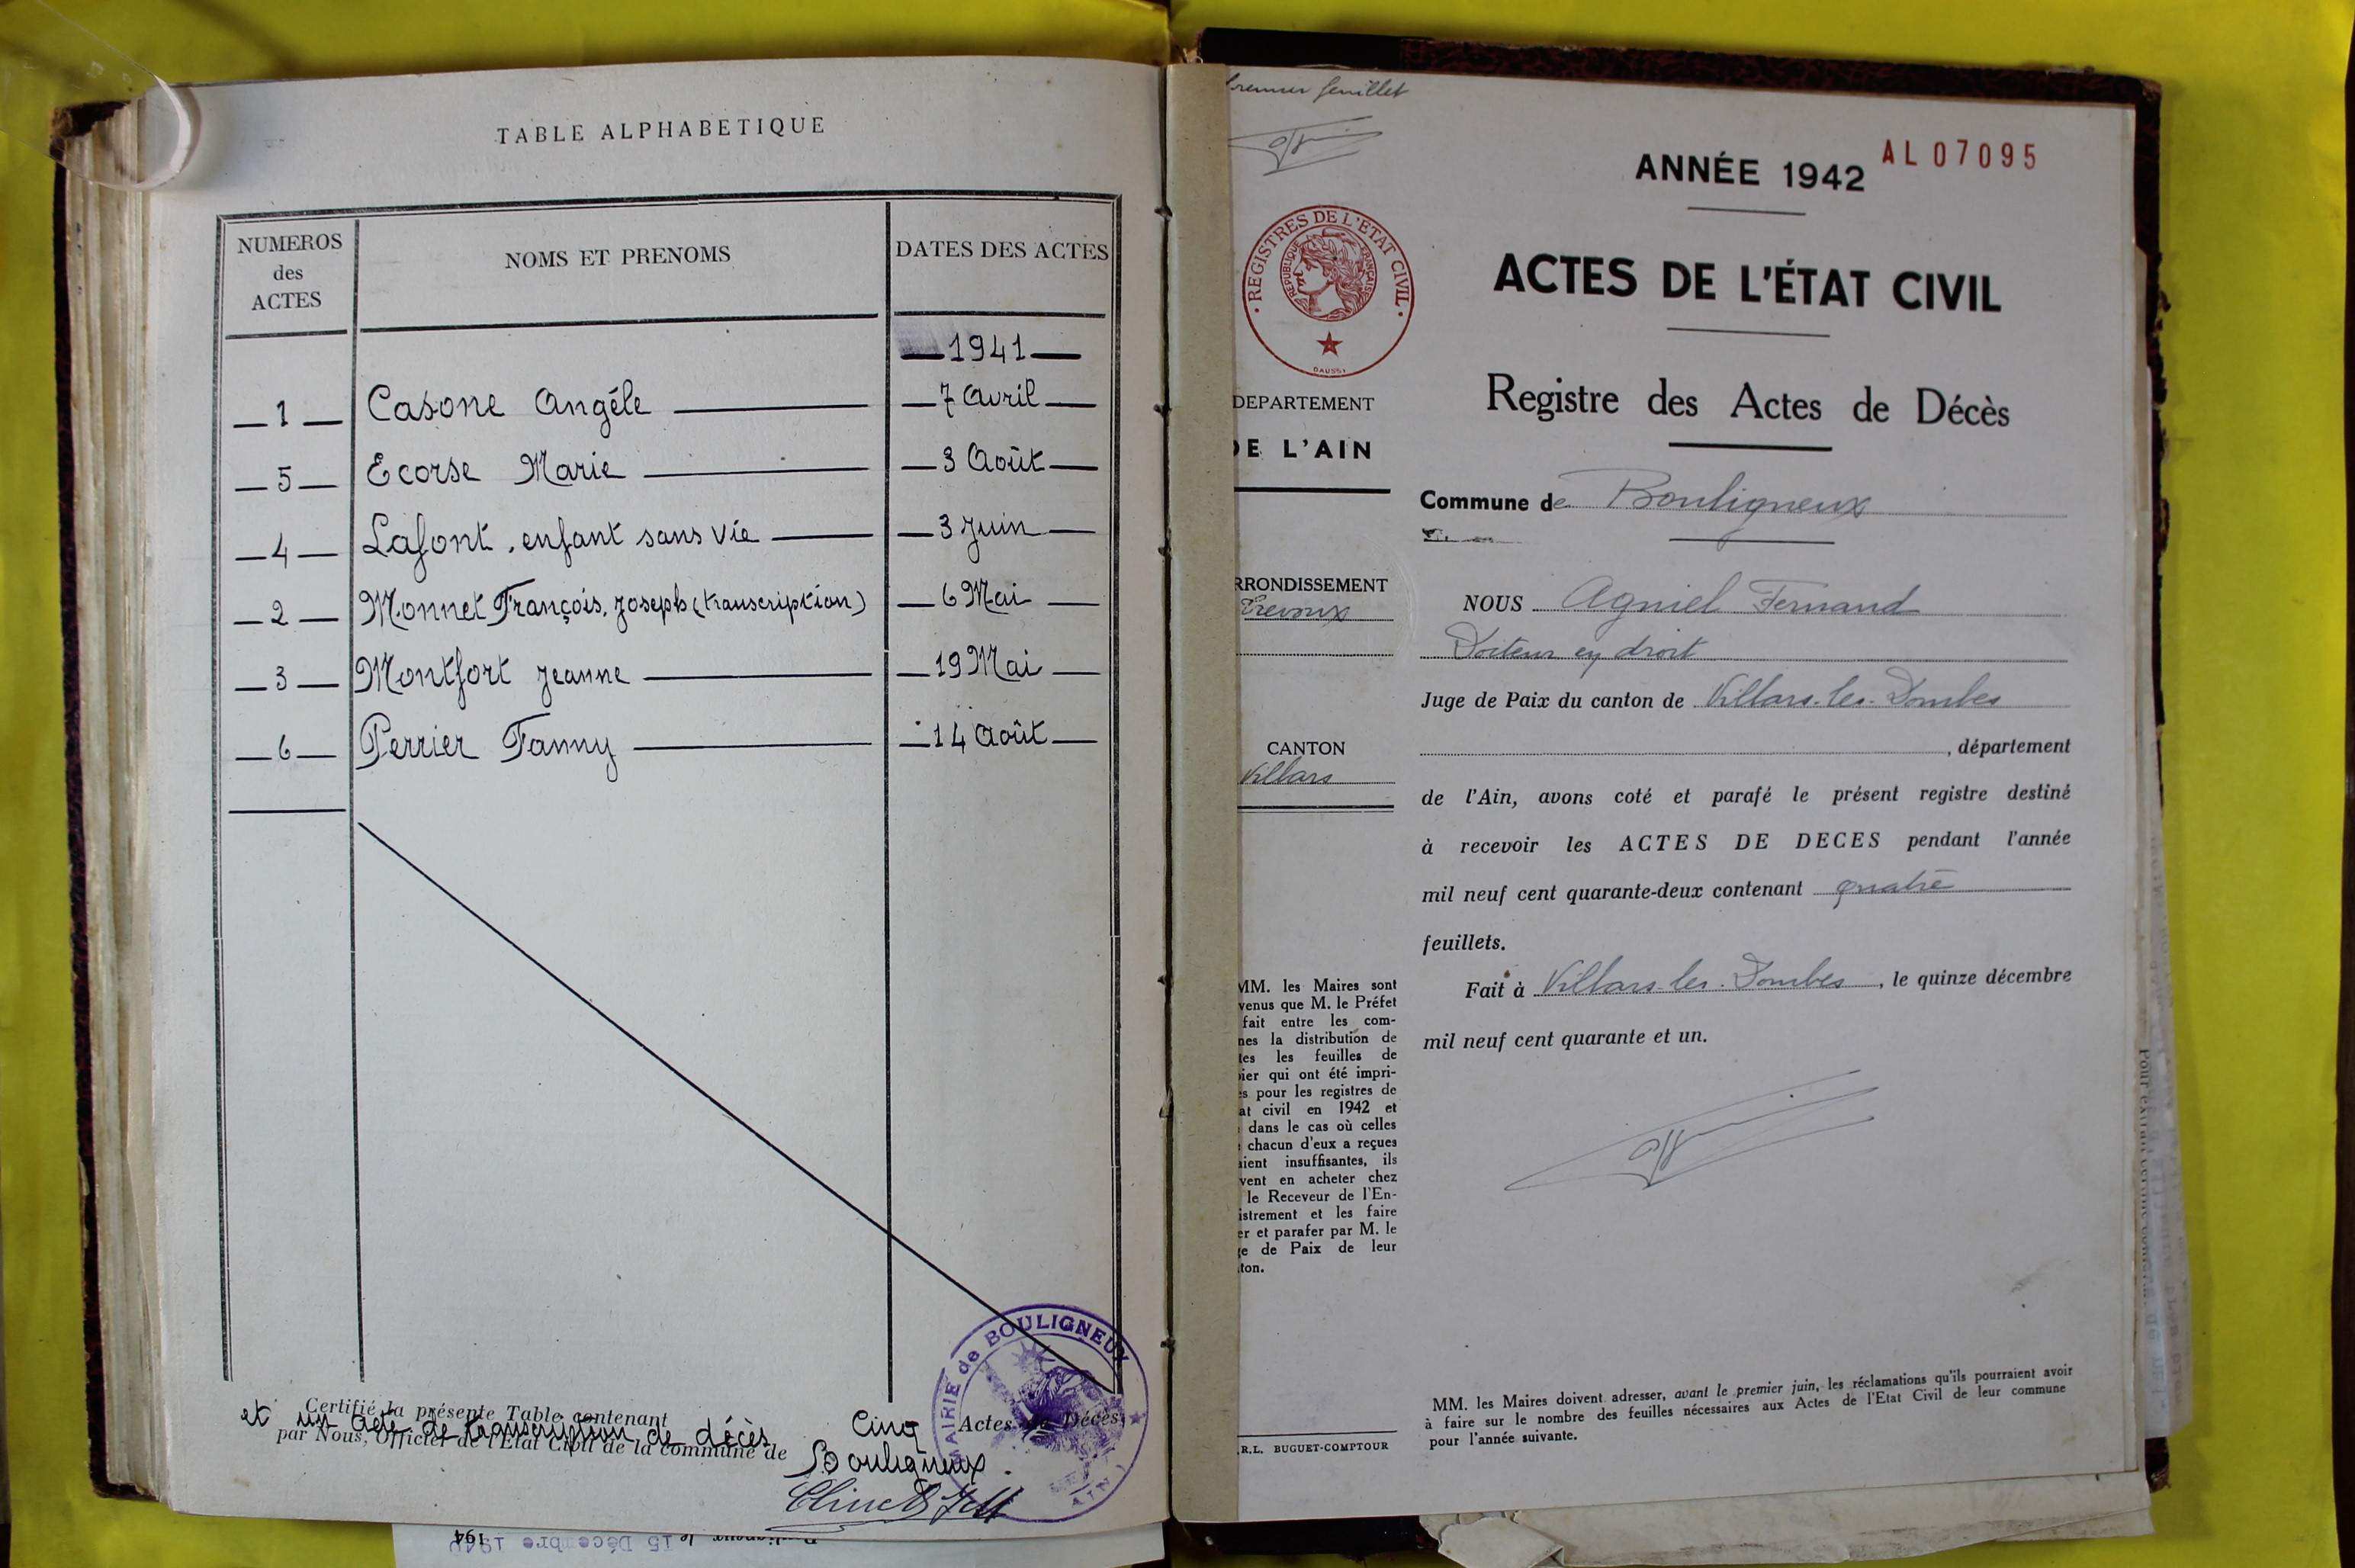 TABLE ALPHABETIQUE
NUMEROS des ACTES
NOMS ET PRENOMS
DATES DES ACTES
1941
1 Casone Angéle 7 Avril
5 Ecorse Marie 3 Août
4 Lafont, enfant sans vie 3 Juin
2 Monnet François, Joseph (transcription) 6 Mai
3 Montfort Jeanne 19 Mai
6 Perrier Fanny 14 Août
Certifié la présente Table contenant Cinq Actes de Décès
et un acte de transcription de décès
par Nous, Officier de l'Etat Civil de la commune de Bouligneux.
MAIRIE de BOULIGNEUX
AIN
15 Décembre 194
premier feuillet
ANNÉE 1942
AL07095
REGISTRES DE L'ETAT CIVIL
REPUBLIQUE FRANÇAISE
DAUSSY
ACTES DE L'ÉTAT CIVIL
Registre des Actes de Décès
DEPARTEMENT
DE L'AIN
Commune de Bouligneux
RRONDISSEMENT
Trevoux
CANTON
Villars
NOUS Agniel Fernand
Docteur en droit
Juge de Paix du canton de Villars-les-Dombes
, département
de l'Ain, avons coté et parafé le présent registre destiné
à recevoir les ACTES DE DECES pendant l'année
mil neuf cent quarante-deux contenant quatre
feuillets.
Fait à Villars-les-Dombes, le quinze décembre
mil neuf cent quarante et un.
MM. les Maires sont
venus que M. le Préfet
fait entre les com-
nes la distribution de
tes les feuilles de
pier qui ont été impri-
es pour les registres de
at civil en 1942 et
dans le cas où celles
chacun d'eux a reçues
aient insuffisantes, ils
vent en acheter chez
le Receveur de l'En-
istrement et les faire
er et parafer par M. le
ge de Paix de leur
ton.
.R.L. BUGUET-COMPTOUR
MM. les Maires doivent adresser, avant le premier juin, les réclamations qu'ils pourraient avoir
à faire sur le nombre des feuilles nécessaires aux Actes de l'Etat Civil de leur commune
pour l'année suivante.